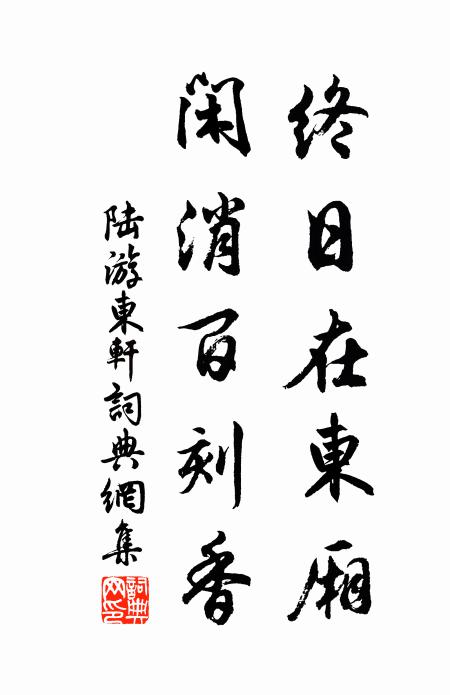 终日在東厢
闲消百刻香
陆游東軒詞典網集
詞典网印